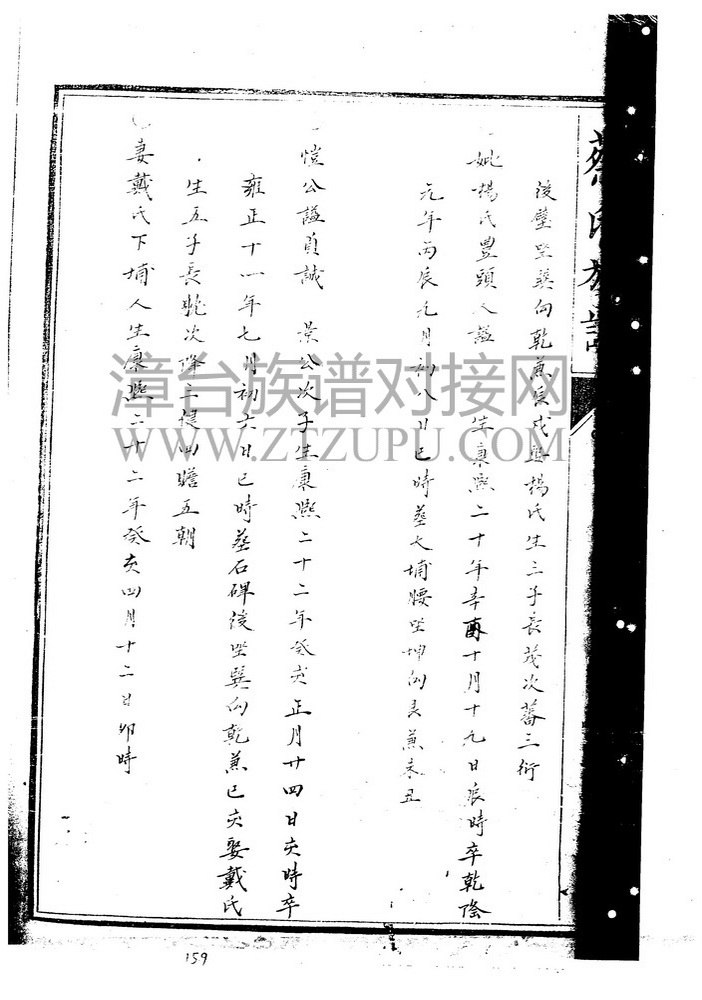 蔡氏族譜
後壁坐巽向乾兼辰戌娶楊氏生三子長茂次蕃三衍
妣楊氏豊頭人謚 生康熙二十年辛酉十月十九日辰時卒乾隆
元年丙辰九月初八日巳時葬大埔腰坐坤向艮兼未丑
愷公謚貞誠 景公次子生康熙二十二年癸亥正月廿四日亥時卒
雍正十一年七月初六日巳時葬石碑後坐巽向乾兼巳亥娶戴氏
生五子長 次降三 四瞻五朝
妻戴氏下埔人生康熙二十二年癸亥四月十二日卯時
漳台族谱对接网
WWW.ZTZUPU.COM
159